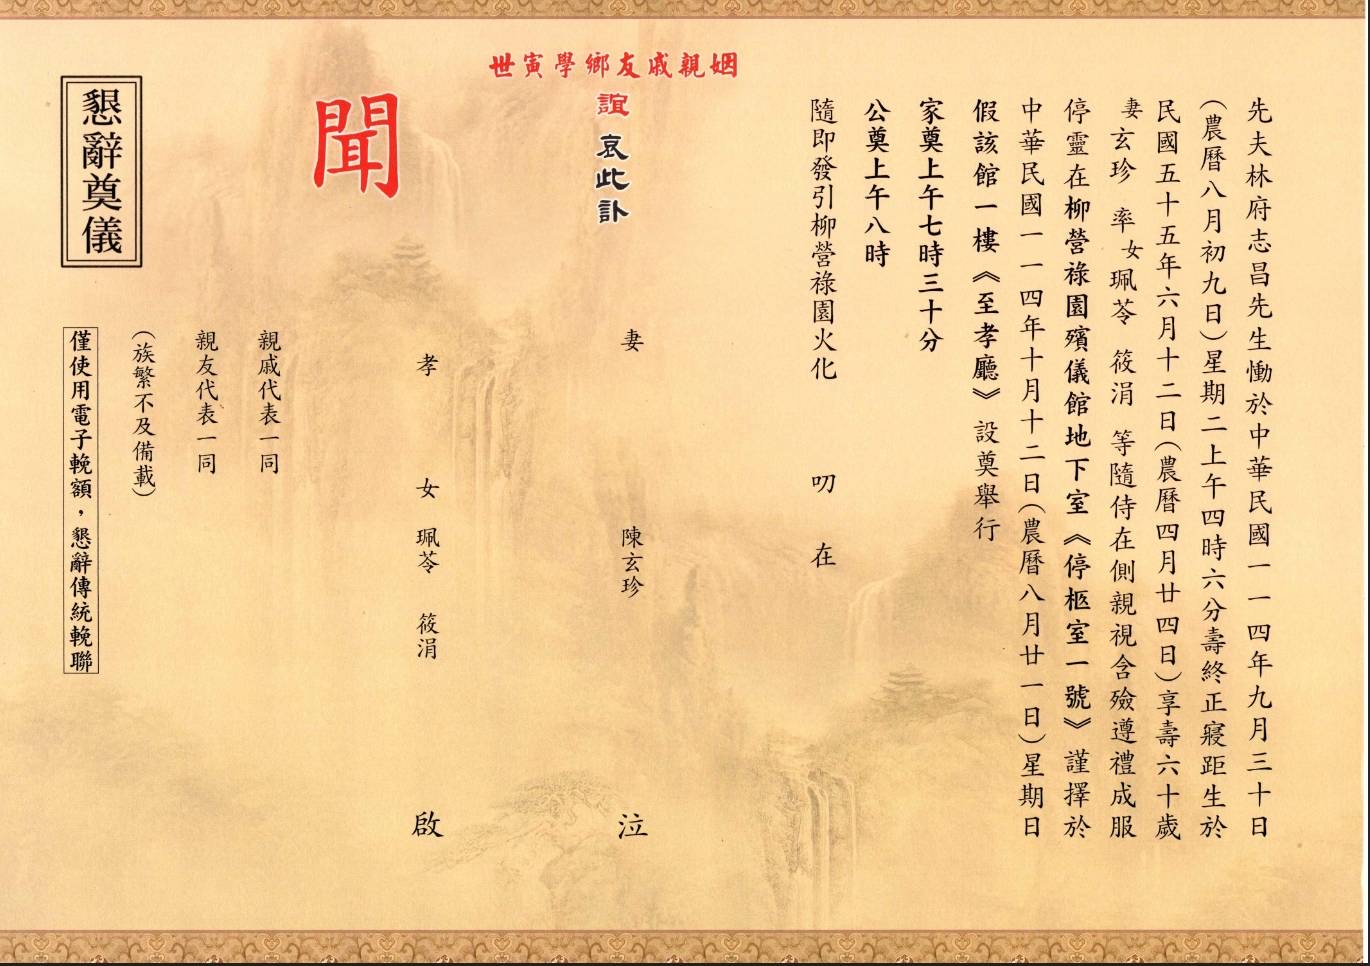 先夫林府志昌先生慟於中華民國一一四年九月三十日
（農曆八月初九日）星期二上午四時六分壽終正寢距生於
民國五十五年六月十二日（農曆四月廿四日）享壽六十歲
妻玄珍 率女珮苓 筱涓 等隨侍在側親視含殮遵禮成服
停靈在柳營祿園殯儀館地下室《停柩室一號》謹擇於
中華民國一一四年十月十二日（農曆八月廿一日）星期日
假該館一樓《至孝廳》設奠舉行
家奠上午七時三十分
公奠上午八時
隨即發引柳營祿園火化 叨在
姻親戚友鄉學寅世
誼 哀此訃
聞
妻 陳玄珍 泣
孝 女 珮苓 筱涓 啟
親戚代表一同
親友代表一同
（族繁不及備載）
懇辭奠儀
僅使用電子輓額，懇辭傳統輓聯